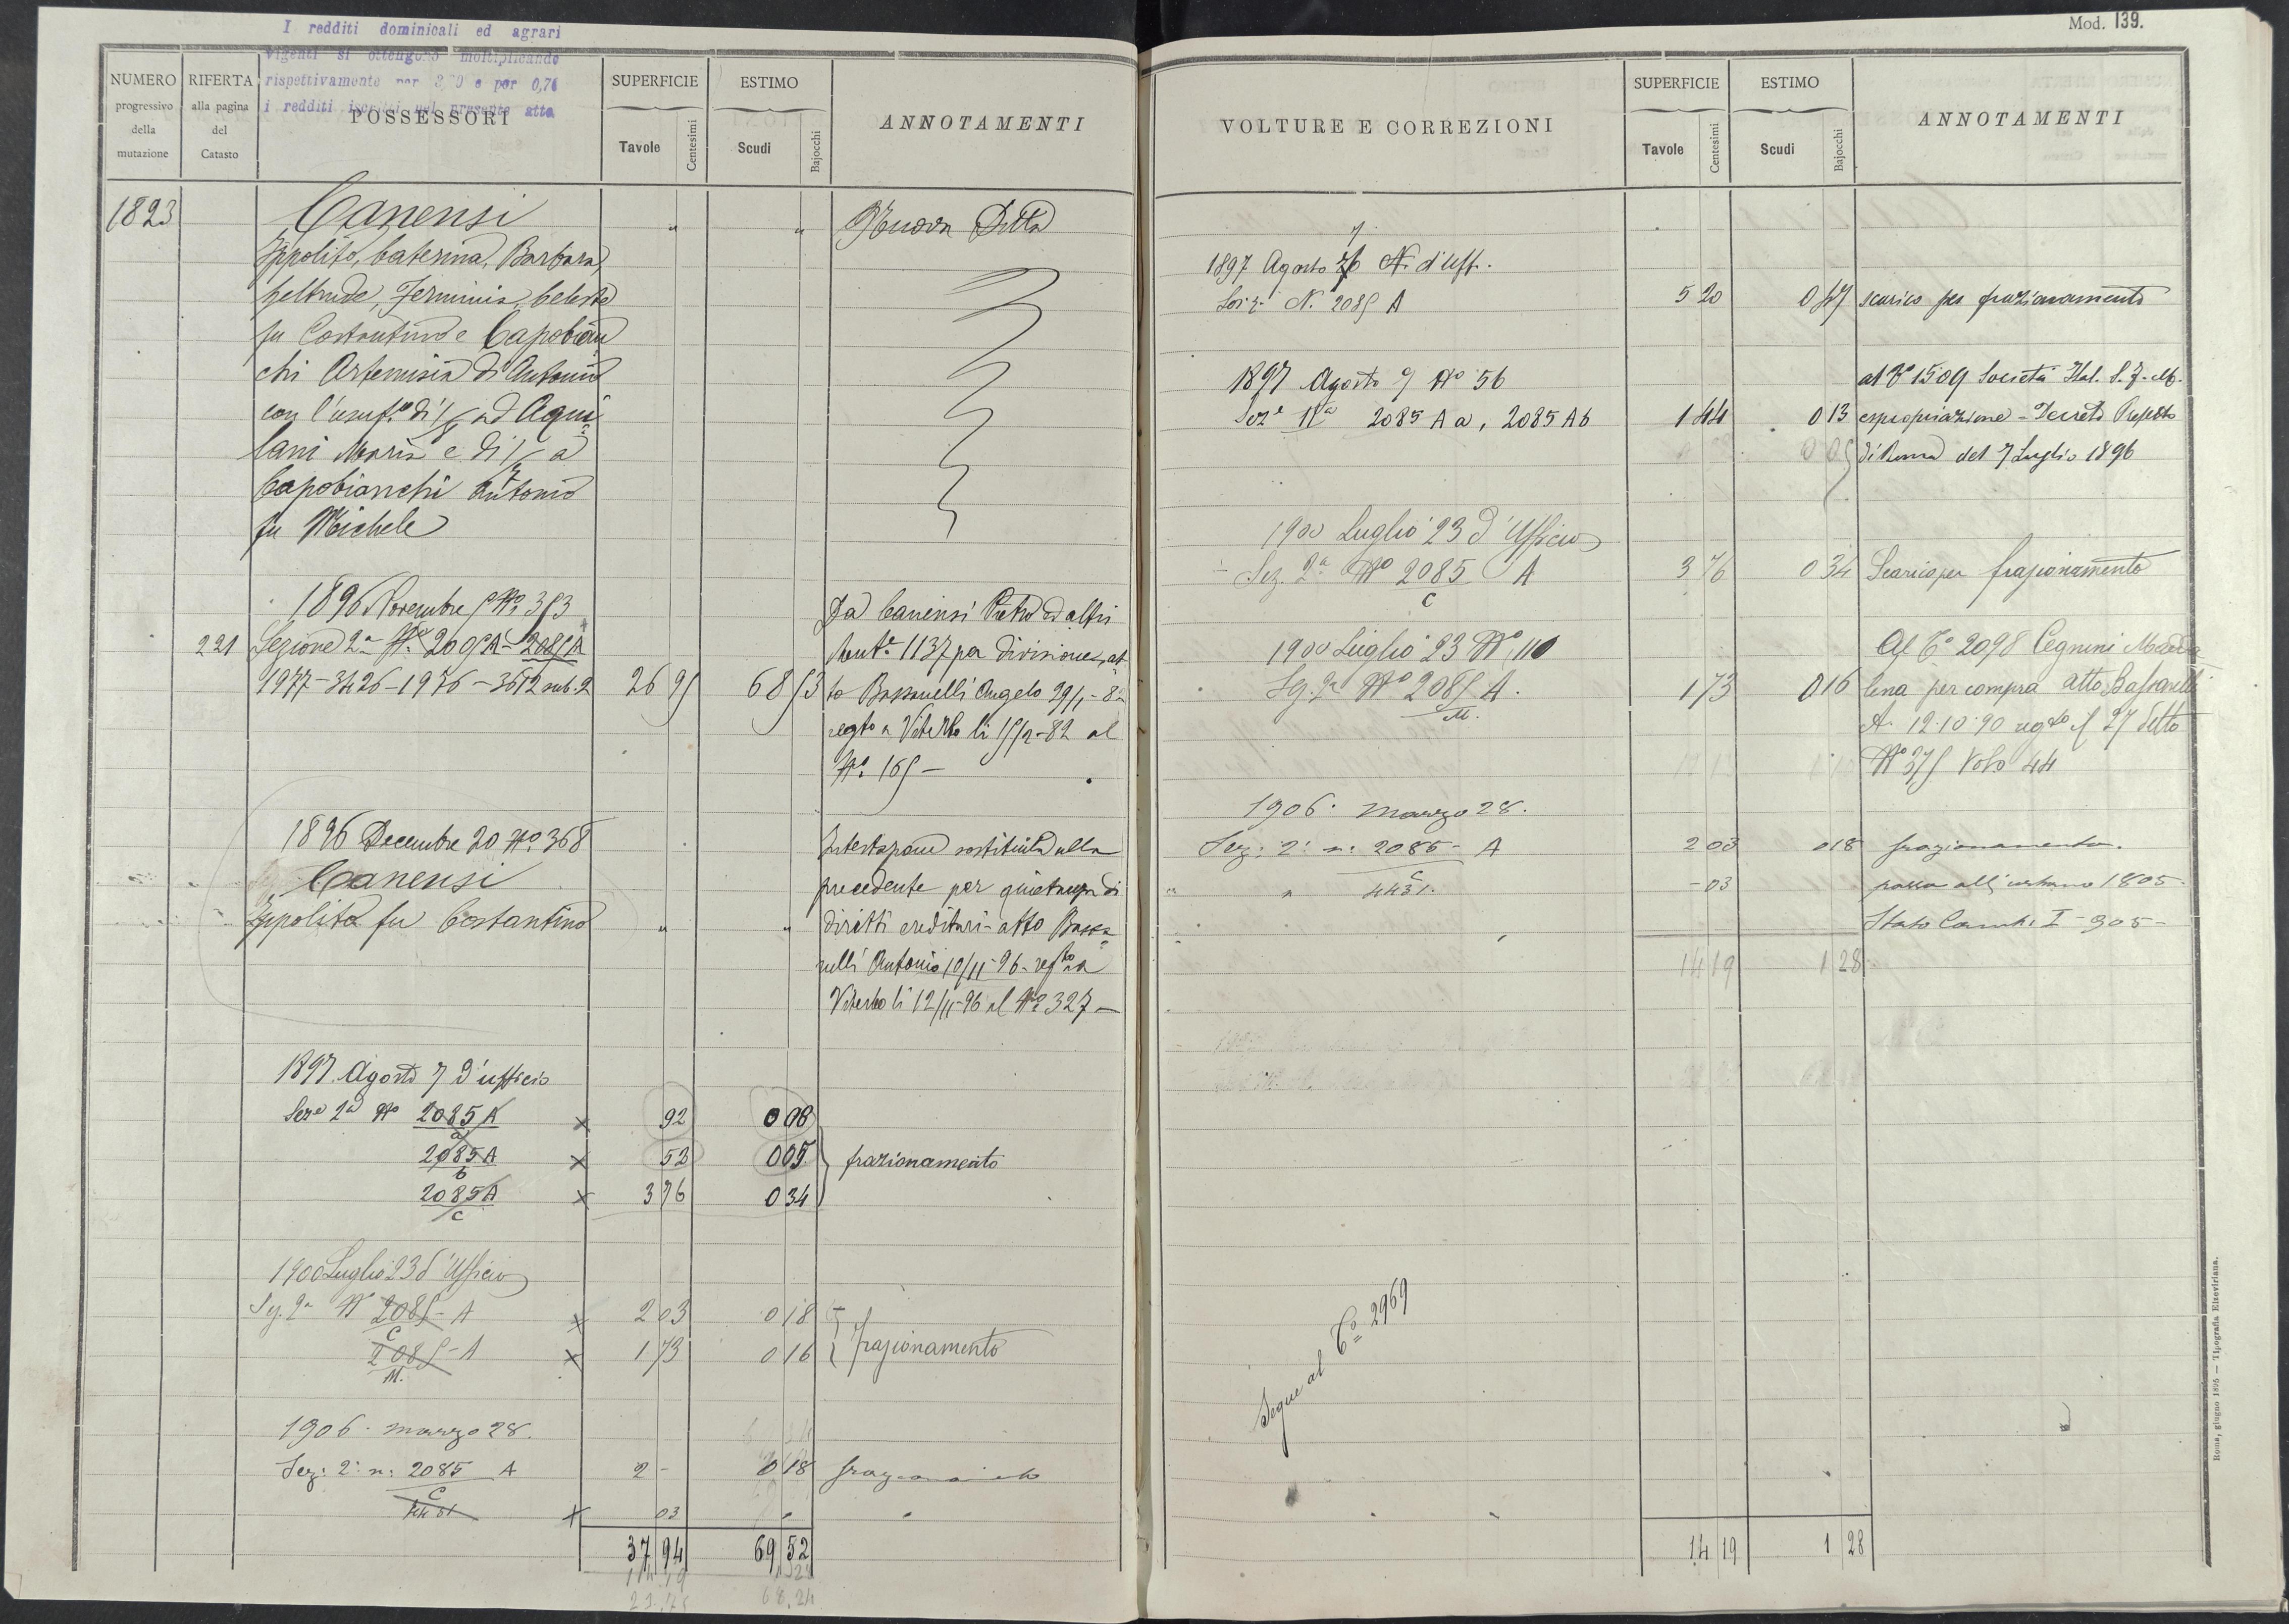 I redditi dominicali ed agrari
vigenti si ottengono moltiplicando
rispettivamente per e per 0,76
i redditi iscritti nel presente atto
NUMERO progressivo della mutazione
RIFERTA alla pagina del Catasto
POSSESSORI
SUPERFICIE
Tavole Centesimi
ESTIMO
Scudi Bajocchi
ANNOTAMENTI
1823 Canensi " " Nuova Ditta
Ippolito, Caterina, Barbara,
Geltrude, Ferminia, Celeste
fu Costantino e Capobian
chi Artemisia di Antonio
con l'usufo di ad Aqui
lani Maria e di a
Capobianchi Antonio
fu Michele
1896 Novembre 5 No 353 Da Canensi Pietro ed altri
221 Sezione 2a No 2095A - 2085A Mente 1137 per divisione, at
1977-3426-1976-3612 sub. 2 26 95 68 53 to Bassanelli Angelo
regto a Viterbo li 15/2-82 al
No 165 -
1896 Decembre 20 No 368 Intestazione sostituita alla
Canensi precedente per quietanza di
Ippolito fu Costantino " " diritti ereditari - atto Bassa
nelli Antonio 10/11-96 - regto a
Viterbo li 12/11-96 al No 327 -
1897 Agosto 7 D'ufficio
Seze 2a No 2085A/a x 92 0 08
2085A/b x 52 0 05 frazionamento
2085A/c x 3 76 0 34
1900 Luglio 23 d'Ufficio
Sez. 2a No 2085-A/C x 2 03 0 18
2085-A/M. x 1 73 0 16 frazionamento
1906 · marzo 28.
Sez: 2a n: 2085 A/C 2 - 0 18 frazionamento
4431 x 03 - "
37 94 69 52
14.19 1 28
23.75 68.24
Mod. 139.
VOLTURE E CORREZIONI
SUPERFICIE
Tavole Centesimi
ESTIMO
Scudi Bajocchi
ANNOTAMENTI
7
1897 Agosto N. d'Uff.
Sez 2a N. 2085 A 5 20 0 47 scarico per frazionamento
1897 Agosto 7 No 56 al Co 1509 Società Ital. S. F. M.
Seze 2a 2085 A a, 2085 A b 1 44 0 13 espropriazione - Decreto Prefetto
di Roma del 7 Luglio 1896
1900 Luglio 23 d'Ufficio
Sez. 2a No 2085 A/C 3 76 0 34 Scarico per frazionamento
1900 Luglio 23 No 110 Al Co 2098 Cegnini Madda
Sez. 2a No 2085 A./M. 1 73 0 16 lena per compra atto Bassanelli
A. 12·10·90 regto il 27 detto
No 375 Vol 44
1906 · marzo 28.
Sez: 2a n: 2085- A/C 2 03 0 18 frazionamento.
" " 4431. - 03 passa all'urbano 1805.
Stato Camb. I - 905 -
14 19 1 28
Segue al Co 2969
14 19 1 28
Roma, giugno 1895 — Tipografia Elzeviriana.